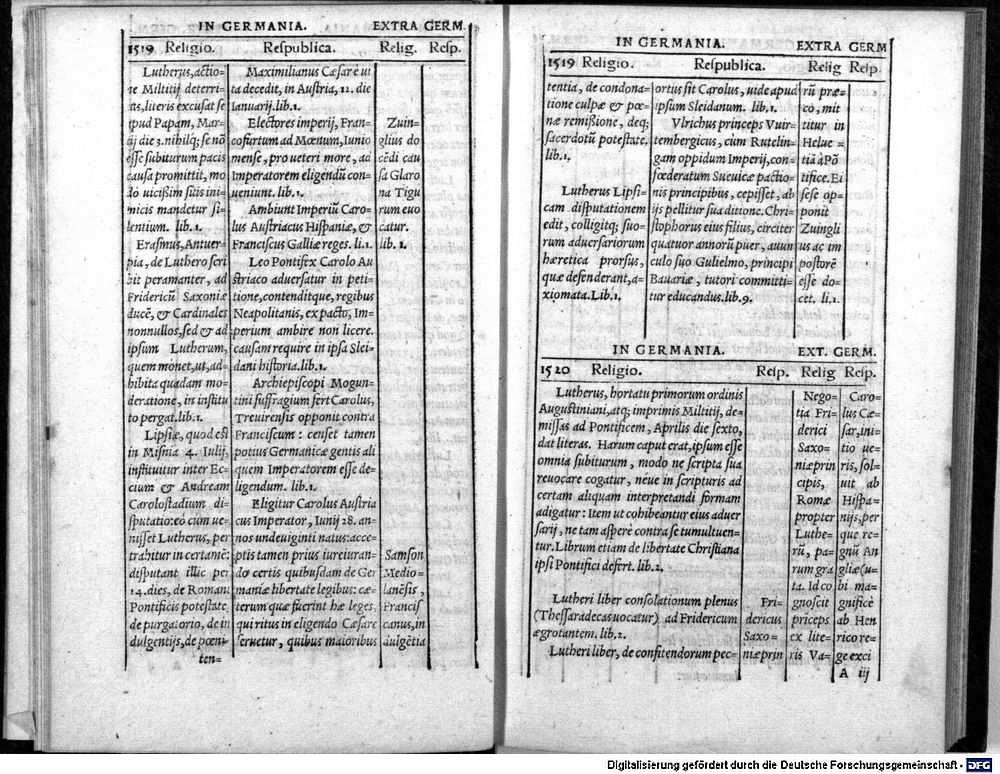 IN GERMANIA. EXTRA GERM.
1519 Religio. Reſpublica. Relig. Reſp.
Lutherus, actio-
ne Miltitij deterri-
tus, literis excuſat ſe
apud Papam, Mar-
tij die 3. nihilq; ſe nō
eſſe ſubiturum pacis
cauſa promittit, mo-
dò uiciſsim ſuis ini-
micis mandetur ſi-
lentium. lib. 1.
Eraſmus, Antuer-
pia, de Luthero ſcri
bit peramanter, ad
Fridericū Saxoniæ
ducē, & Cardinales
nonnullos, ſed & ad
ipſum Lutherum,
quem monet, ut, ad-
hibita quadam mo-
deratione, in inſtitu
to pergat. lib. 1.
Lipſiæ, quod eſt
in Miſnia 4. Iulij,
inſtituitur inter Ec-
cium & Andream
Caroloſtadium di-
ſputatio: eò cùm ue-
niſſet Lutherus, per
trahitur in certamē:
diſputant illic per
14. dies, de Romani
Pontificis poteſtate,
de purgatorio, de in
dulgentijs, de pœni-
ten-
Maximilianus Cæſar è ui
ta decedit, in Auſtria, 12. die
Ianuarij. lib. 1.
Electores imperij, Fran-
cofurtum ad Mœnum, Iunio
menſe, pro ueteri more, ad
Imperatorem eligendū con-
ueniunt. lib. 1.
Ambiunt Imperiū Caro-
lus Auſtriacus Hiſpaniæ, &
Franciſcus Galliæ reges. li. 1.
Leo Pontifex Carolo Au
ſtriaco aduerſatur in peti-
tione, contenditque, regibus
Neapolitanis, ex pacto, Im-
perium ambire non licere.
cauſam require in ipſa Slei-
dani hiſtoria. lib. 1.
Archiepiſcopi Mogun-
tini ſuffragium fert Carolus,
Treuirenſis opponit contra
Franciſcum: cenſet tamen
potius Germanicæ gentis ali
quem Imperatorem eſſe de-
ligendum. lib. 1.
Eligitur Carolus Auſtria
cus Imperator, Iunij 28. an-
nos undeuiginti natus: acce-
ptis tamen prius iureiuran-
do certis quibuſdam de Ger
maniæ libertate legibus: cæ-
terum quæ fuerint hæ leges,
qui ritus in eligendo Cæſare
ſeruetur, quibus maioribus
Zuin-
glius do
cēdi cau
ſa Glaro
na Tigu
rum euo
catur.
lib. 1.
Samſon
Medio-
lanēſis,
Franciſ
canus, in
dulgētia
IN GERMANIA. EXTRA GERM
1519 Religio. Reſpublica. Relig Reſp.
tentia, de condona-
tione culpæ & pœ-
næ remiſsione, deq;
ſacerdotū poteſtate,
lib. 1.
Lutherus Lipſi-
cam diſputationem
edit, colligitq; ſuo-
rum aduerſariorum
hæretica prorſus,
quæ defenderant, a-
xiomata. Lib. 1.
ortus ſit Carolus, uide apud
ipſum Sleidanum. lib. 1.
Vlrichus princeps Vuir-
tembergicus, cùm Rutelin-
gam oppidum Imperij, con-
fœderatum Sueuicæ pactio-
nis principibus, cepiſſet, ab
ijs pellitur ſua ditione. Chri-
ſtophorus eius filius, circiter
quatuor annorū puer, auun
culo ſuo Gulielmo, principi
Bauariæ, tutori committi-
tur educandus. lib. 9.
rū præ-
co, mit
titur in
Helue-
tiā à Pō
tifice. Ei
ſeſe op-
ponit
Zuingli
us ac im
poſtorē
eſſe do-
cet. li. 1.
IN GERMANIA. EXT. GERM.
1520 Religio. Reſp. Relig Reſp.
Lutherus, hortatu primorum ordinis
Auguſtiniani, atq; imprimis Miltitij, de-
miſſas ad Pontificem, Aprilis die ſexto,
dat literas. Harum caput erat, ipſum eſſe
omnia ſubiturum, modo ne ſcripta ſua
reuocare cogatur, neue in ſcripturis ad
certam aliquam interpretandi formam
adigatur: Item ut cohibeantur eius aduer
ſarij, ne tam aſperè contra ſe tumultuen-
tur. Librum etiam de libertate Chriſtiana
ipſi Pontifici defert. lib. 2.
Lutheri liber conſolationum plenus
(Theſſaradecas uocatur) ad Fridericum
ægrotantem. lib. 2.
Lutheri liber, de confitendorum pec-
Fri-
dericus
Saxo-
niæ prin
Nego-
tia Fri-
derici
Saxo-
niæ prin
cipis,
Romæ
propter
Luthe-
rū, pa-
rum gra
ta. Id co
gnoſcit
priceps
ex lite-
ris Va-
Caro-
lus Cæ-
ſar, ini-
tio ue-
ris, ſol-
uit ab
Hiſpa-
nijs, per
que re-
gnū An
gliæ (u-
bi ma-
gnificè
ab Hen
rico re-
ge exci
A iij
Digitalisierung gefördert durch die Deutsche Forschungsgemeinschaft - DFG